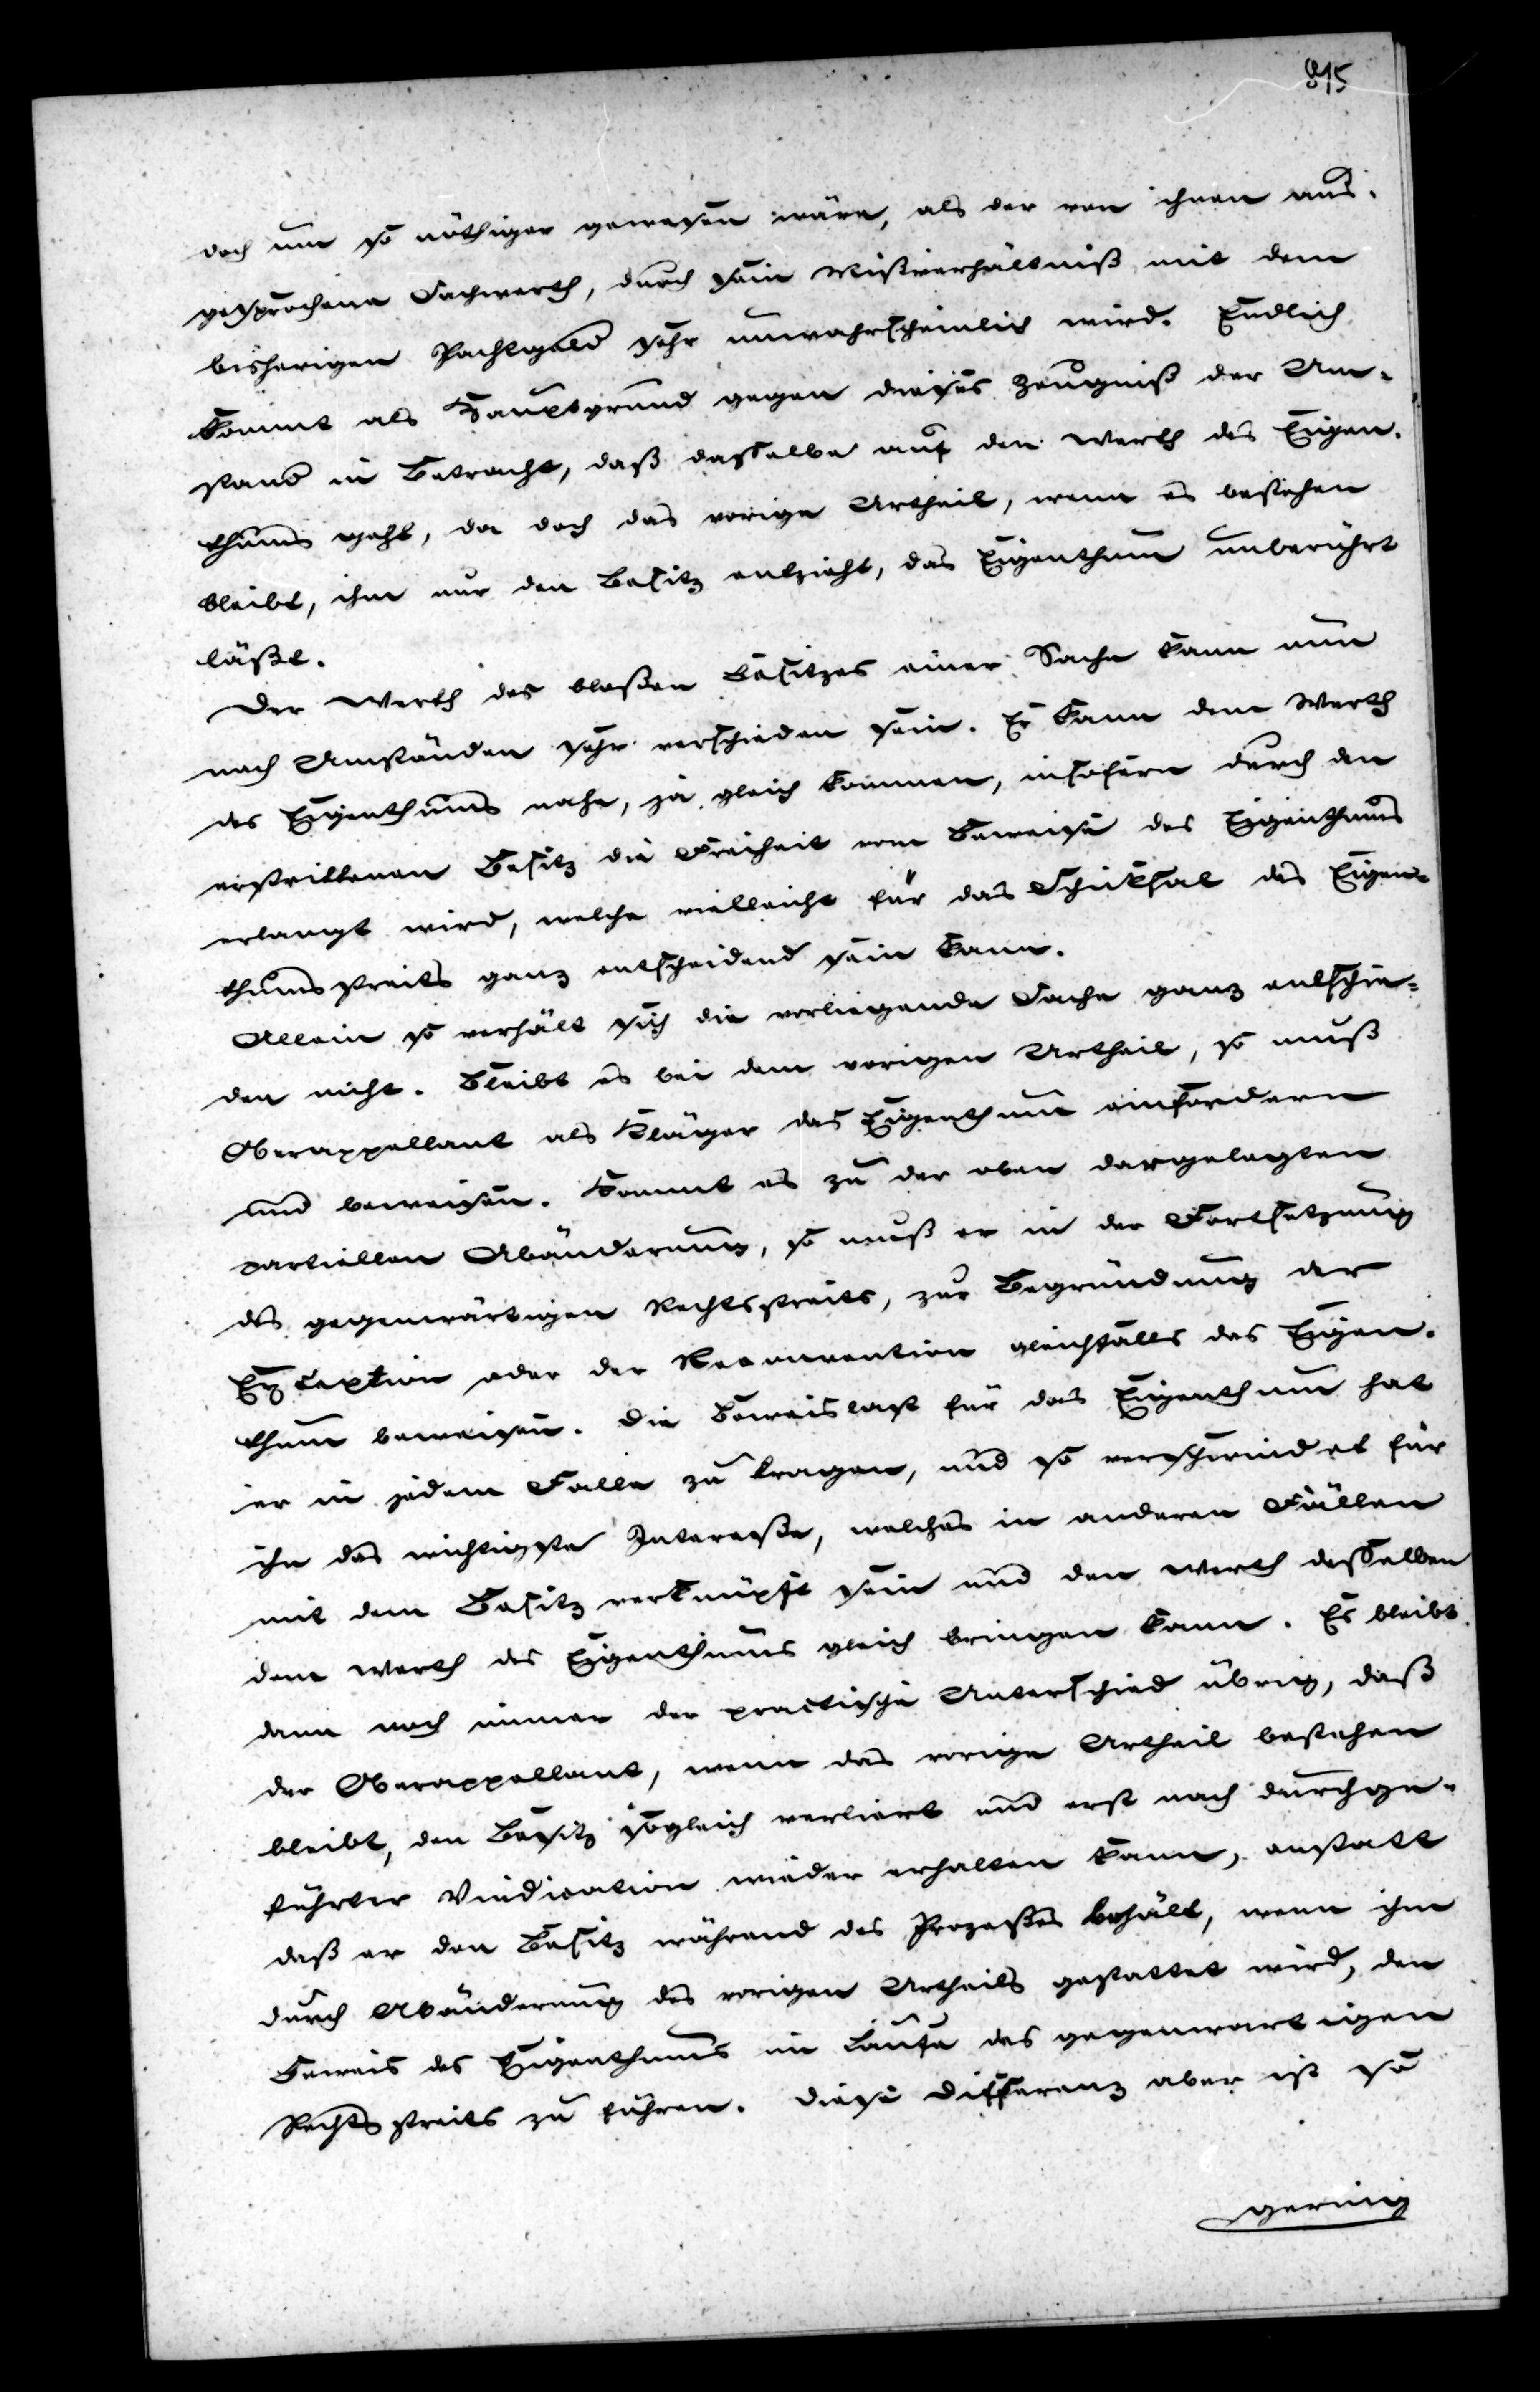 815
doch um so nöthiger gewesen wäre, als der von ihnen aus-
gesprochene Sachwerth, durch sein Mißverhältniß mit dem
bisherigen Pachtgeld sehr unwahrscheinlich wird. Endlich
kommt als Hauptgrund gegen dieses Zeugniß der Um-
stand in Betracht, daß dasselbe auf den Werth des Eigen-
thums geht, da doch das vorige Urtheil, wenn es bestehen
bleibt, ihm nur den Besitz entzieht, das Eigenthum unberührt
läßt.
Der Werth des bloßen Besitzes einer Sache kann nun
nach Umständen sehr verschieden sein. Er kann dem Werth
des Eigenthums nahe, ja gleich kommen, insofern durch den
erstrittenen Besitz die Freiheit vom Beweise des Eigenthums
erlangt wird, welche vielleicht für das Schicksal des Eigen-
thumsstreits ganz entscheidend sein kann.
Allein so verhält sich die vorliegende Sache ganz entschie-
den nicht. Bleibt es bei dem vorigen Urtheil, so muß
Oberappellant als Kläger das Eigenthum einfordern
und beweisen. Kommt es zu der oben dargelegten
partiellen Abänderung, so muß er in der Fortsetzung
des gegenwärtigen Rechtsstreits, zur Begründung der
Exception oder der Reconvention gleichfalls das Eigen-
thum beweisen. Die Beweislast für das Eigenthum hat
er in jedem Falle zu tragen, und so verschwindet für
ihn das wichtigste Interesse, welches in anderen Fällen
mit dem Besitz verknüpft sein und den Werth desselben
dem Werth des Eigenthums gleich bringen kann. Es bleibt
dann noch immer der practische Unterschied übrig, daß
der Oberappellant, wenn das vorige Urtheil bestehen
bleibt, den Besitz sogleich verliert und erst nach durchge-
führter Vindication wieder erhalten kann, anstatt
daß er den Besitz während des Prozeßes behält, wenn ihm
durch Abänderung des vorigen Urtheils gestattet wird, den
Beweis des Eigenthums im Laufe des gegenwartigen
Rechtsstreits zu führen. Diese Differenz aber ist so
gering